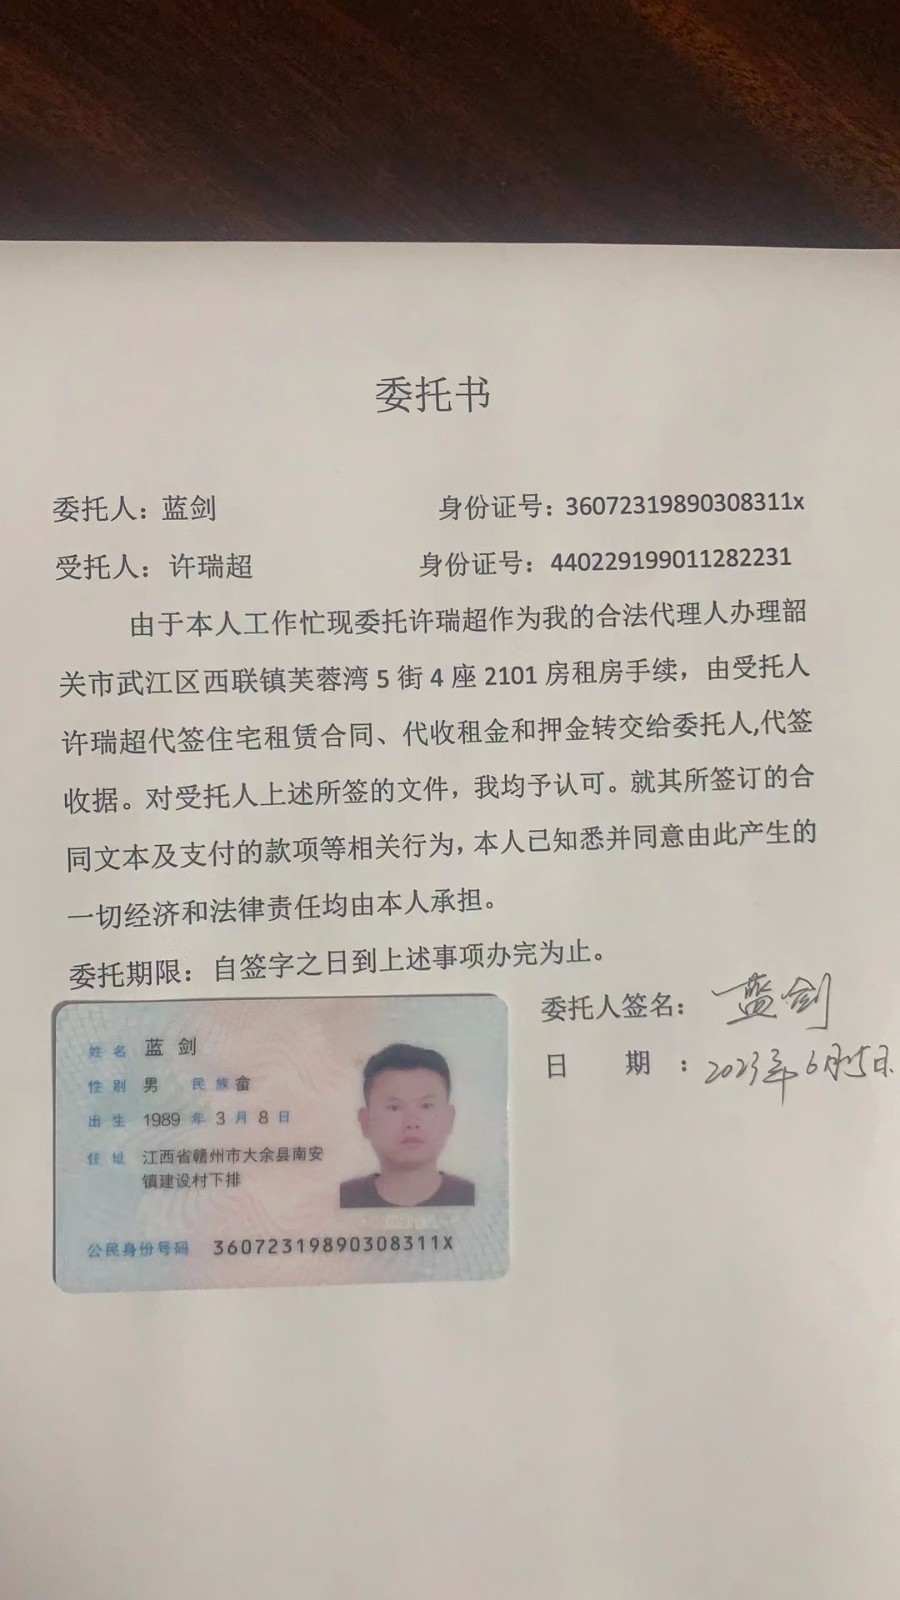 委托书
委托人：蓝剑 身份证号：36072319890308311x
受托人：许瑞超 身份证号：440229199011282231
由于本人工作忙现委托许瑞超作为我的合法代理人办理韶
关市武江区西联镇芙蓉湾 5 街 4 座 2101 房租房手续，由受托人
许瑞超代签住宅租赁合同、代收租金和押金转交给委托人,代签
收据。对受托人上述所签的文件，我均予认可。就其所签订的合
同文本及支付的款项等相关行为，本人已知悉并同意由此产生的
一切经济和法律责任均由本人承担。
委托期限：自签字之日到上述事项办完为止。
委托人签名：蓝剑
日 期 ：2023年6月15日
姓名 蓝剑
性别 男 民族 畲
出生 1989 年 3 月 8 日
住址 江西省赣州市大余县南安
镇建设村下排
公民身份号码 36072319890308311X